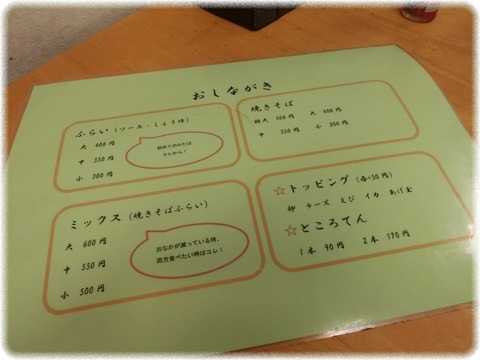 おしながき
ふらい（ソース・しょうゆ）
大 400円
中 350円
小 300円
初めてのかたは
コレから！
焼きそば
特大 500円 大 400円
中 350円 小 300円
ミックス（焼きそばふらい）
大 600円
中 550円
小 500円
おなかが減っている時、
両方食べたい時はコレ！
☆トッピング（各50円）
卵 チーズ えび イカ あげ玉
☆ところてん
1本 90円 2本 170円